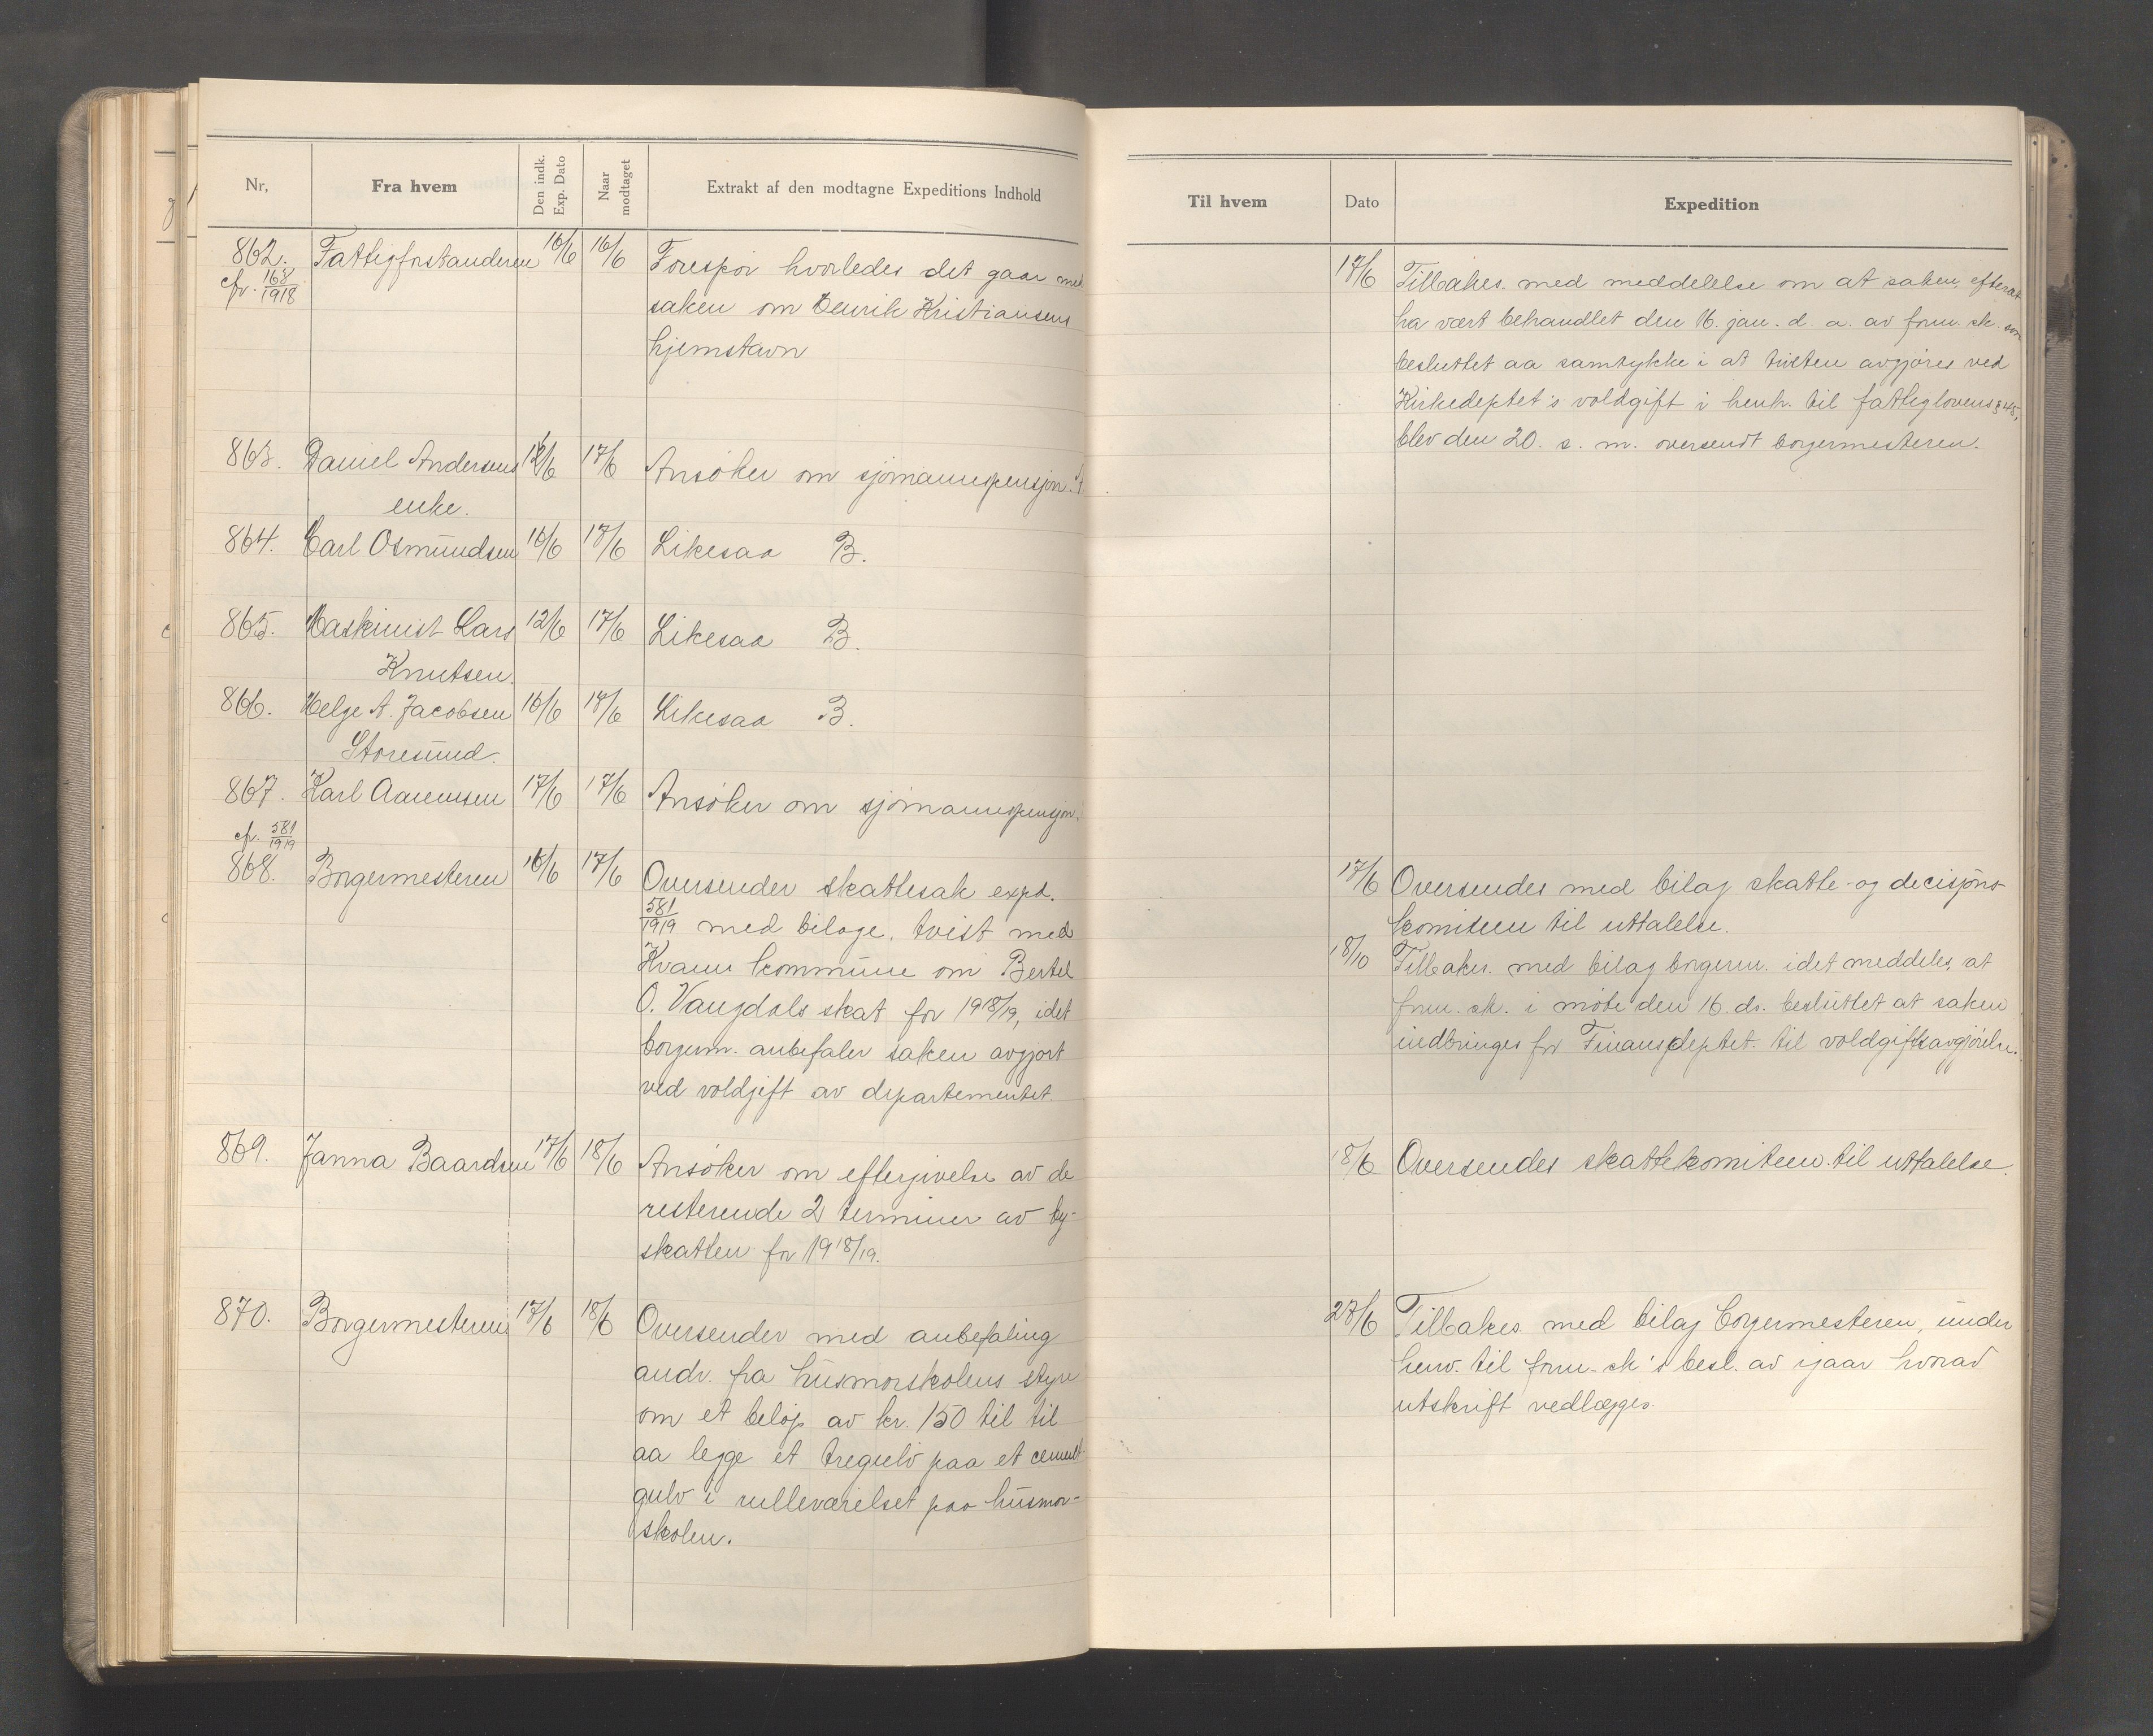 Nr,
Fra hvem
Den indk. Exp. Dato
Naar modtaget
Extrakt af den modtagne Expeditions Indhold
862. Fattigforstanderen 16/6 16/6 Forespør hvorledes det gaar med
cfr. 168/1918
saken om Henrik Kristiansens
hjemstavn
863. Daniel Andersens 12/6 17/6 Ansøker om sjømannspensjon.
enke.
864. Carl Osmundsen 16/6 17/6 Likesaa B.
865. Maskinist Lars 12/6 17/6 Likesaa B.
Knutsen.
866. Helge A. Jacobsen 16/6 17/6 Likesaa B.
Storesund.
867. Karl Aanensen 17/6 17/6 Ansøker om sjømannspensjon.
cfr. 581/1919
868. Borgermesteren 16/6 17/6 Oversender skattesak expd.
581/1919 med bilage, tvist med
Kvam kommune om Bertel
O. Vangdals skat for 1918/19, idet
borgerm. anbefaler saken avgjort
ved voldgift av departementet.
869. Janna Baardsen 17/6 18/6 Ansøker om eftergivelse av de
resterende 2 terminer av by-
skatten for 1918/19.
870. Borgermesteren 17/6 18/6 Oversender med anbefaling
andr. fra husmorskolens styre
om et beløp av kr. 150 til til
aa legge et tregulv paa et cement-
gulv i rulleværelset paa husmor-
skolen.
Til hvem
Dato
Expedition
17/6 Tilbakes. med meddelelse om at saken, efterat
ha vært behandlet den 16. jan. d. a. av form. sk. som
besluttet aa samtykke i at tvisten avgjøres ved
Kirkedeptet's voldgift i henh. til fattiglovens § 45,
blev den 20. s. m. oversendt borgermesteren.
17/6 Oversendes med bilag skatte- og decisjons-
komiteen til uttalelse.
18/10 Tilbakes. med bilag borgerm. idet meddeles, at
form. sk. i møte den 16. ds. besluttet at saken
indbringes for Finansdeptet. til voldgiftsavgjørelse.
18/6 Oversendes skattekomiteen til uttalelse.
27/6 Tilbakes. med bilag borgermesteren, under
henv. til form. sk's besl. av igaar hvorav
utskrift vedlægges.